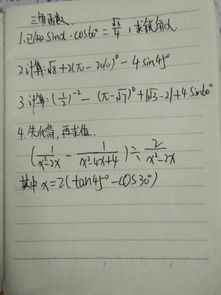 三角函数
1.已知 sinα·cos60°=√3/4,求锐角α
2.计算:√8+2(π-2016)°-4sin45°
3.计算:(1/2)⁻²-(π-√7)°+|√3-2|+4sin60°
4.先化简,再求值.
(1/(x²-2x) - 1/(x²-4x+4))÷2/(x²-2x)
其中x=2(tan45°-cos30°)